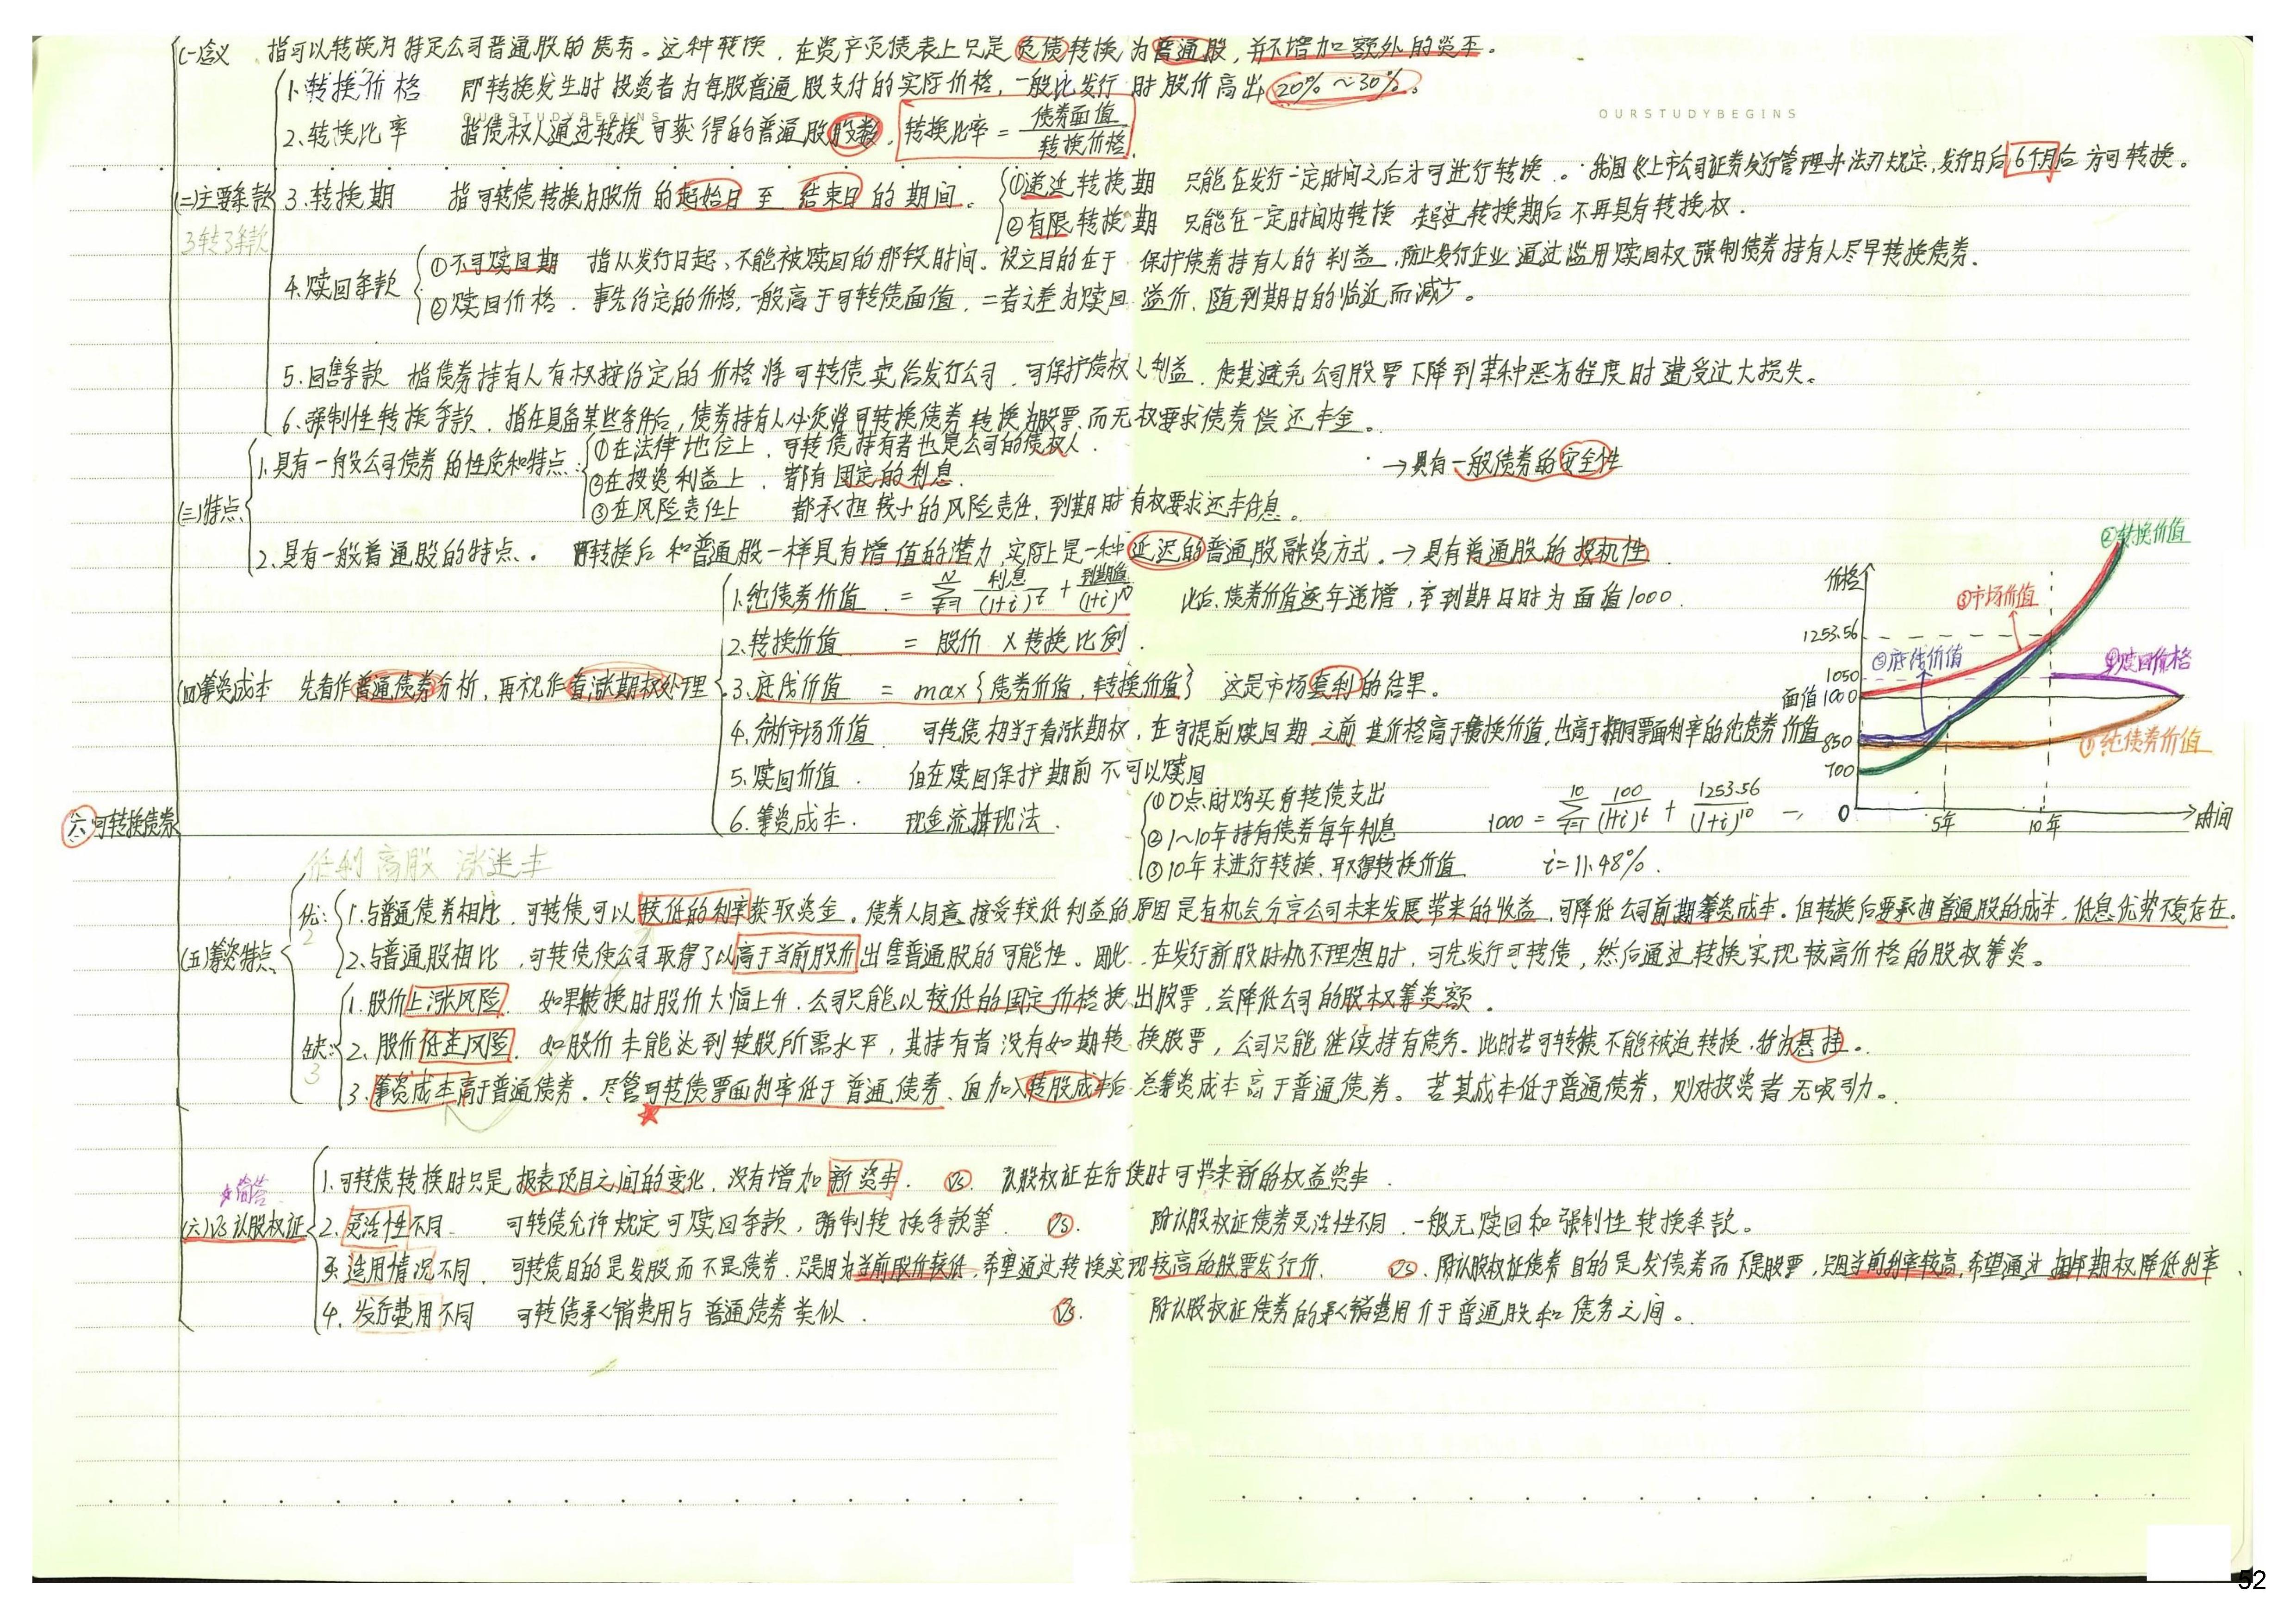 (一)含义 指可以转换为特定公司普通股的债券。这种转换，在资产负债表上只是负债转换为普通股，并不增加额外的资本。
1.转换价格 即转换发生时投资者为每股普通股支付的实际价格，一般比发行时股价高出20%~30%。
OURSTUDYBEGINS
OURSTUDYBEGINS
2.转换比率 指债权人通过转换可获得的普通股股数，转换比率=债券面值/转换价格
(二)主要条款
3转3条款
3.转换期 指可转债转换为股份的起始日至结束日的期间。
①递延转换期 只能在发行一定时间之后才可进行转换。我国《上市公司证券发行管理办法》规定，发行日后6个月后方可转换。
②有限转换期 只能在一定时间内转换 超过转换期后不再具有转换权.
4.赎回条款
①不可赎回期 指从发行日起、不能被赎回的那段时间。设立目的在于保护债券持有人的利益，防止发行企业通过滥用赎回权强制债券持有人尽早转换债券.
②赎回价格. 事先约定的价格，一般高于可转债面值，二者之差为赎回溢价，随到期日的临近而减少。
5.回售条款 指债券持有人有权按约定的价格将可转债卖给发行公司，可保护债权人利益，使其避免公司股票下降到某种恶劣程度时遭受过大损失。
6.强制性转换条款. 指在具备某些条件后，债券持有人必须将可转换债券转换为股票，而无权要求债券偿还本金。
(三)特点
1.具有一般公司债券的性质和特点:
①在法律地位上，可转债持有者也是公司的债权人.
②在投资利益上，都有固定的利息.
③在风险责任上 都承担较小的风险责任，到期时有权要求还本付息。
→具有一般债券的安全性
2.具有一般普通股的特点. 即转换后和普通股一样具有增值的潜力，实际上是一种延迟的普通股融资方式.→具有普通股的投机性
(四)筹资成本 先看作普通债券分析，再视作看涨期权处理
1.纯债券价值 = ∑(t=1→N) 利息/(1+i)^t + 到期值/(1+i)^N 此后，债券价值逐年递增，至到期日时为面值1000.
2.转换价值 = 股价×转换比例.
3.底线价值 = max{债券价值，转换价值} 这是市场套利的结果。
4.分析市场价值 可转债相当于看涨期权，在可提前赎回期之前 其价格高于转换价值，也高于相同票面利率的纯债券价值
5.赎回价值. 但在赎回保护期前不可以赎回
6.筹资成本. 现金流折现法.
①0点时购买可转债支出
②1~10年持有债券每年利息
③10年末进行转换，取得转换价值
1000 = ∑(t=1→10) 100/(1+i)^t + 1253.56/(1+i)^10
i=11.48%.
价格
②转换价值
⑤市场价值
1253.56
③底线价值
④赎回价格
1050
面值1000
850
①纯债券价值
700
0
5年
10年
时间
(六)可转换债券
低利 高股 涨迷本
(五)筹资特点
优:
2
1.与普通债券相比，可转债可以较低的利率获取资金。债券人同意接受较低利益的原因是有机会分享公司未来发展带来的收益，可降低公司前期筹资成本。但转换后要承担普通股的成本，低息优势不复存在.
2.与普通股相比，可转债使公司取得了以高于当前股价出售普通股的可能性。因此，在发行新股时机不理想时，可先发行可转债，然后通过转换实现较高价格的股权筹资。
缺:
3
1.股价上涨风险. 如果转换时股价大幅上升，公司只能以较低的固定价格换出股票，会降低公司的股权筹资额.
2.股价低迷风险. 如股价未能达到转股所需水平，其持有者没有如期转换股票，公司只能继续持有债务。此时若可转债不能被迫转换，称为悬挂.
3.筹资成本高于普通债券. 尽管可转债票面利率低于普通债券，但加入转股成本后总筹资成本高于普通债券。若其成本低于普通债券，则对投资者无吸引力。
简答
(六)VS认股权证
1.可转债转换时只是报表项目之间的变化，没有增加新资本. VS. 认股权证在行使时可带来新的权益资本.
2.灵活性不同. 可转债允许规定可赎回条款，强制转换条款等. VS. 附认股权证债券灵活性不同，一般无赎回和强制性转换条款。
3.适用情况不同. 可转债目的是发股而不是债券，只是因为当前股价较低，希望通过转换实现较高的股票发行价. VS. 附认股权证债券目的是发债券而不是股票，只因当前利率较高，希望通过捆绑期权降低利率.
4.发行费用不同 可转债承销费用与普通债券类似. VS. 附认股权证债券的承销费用介于普通股和债务之间。
52